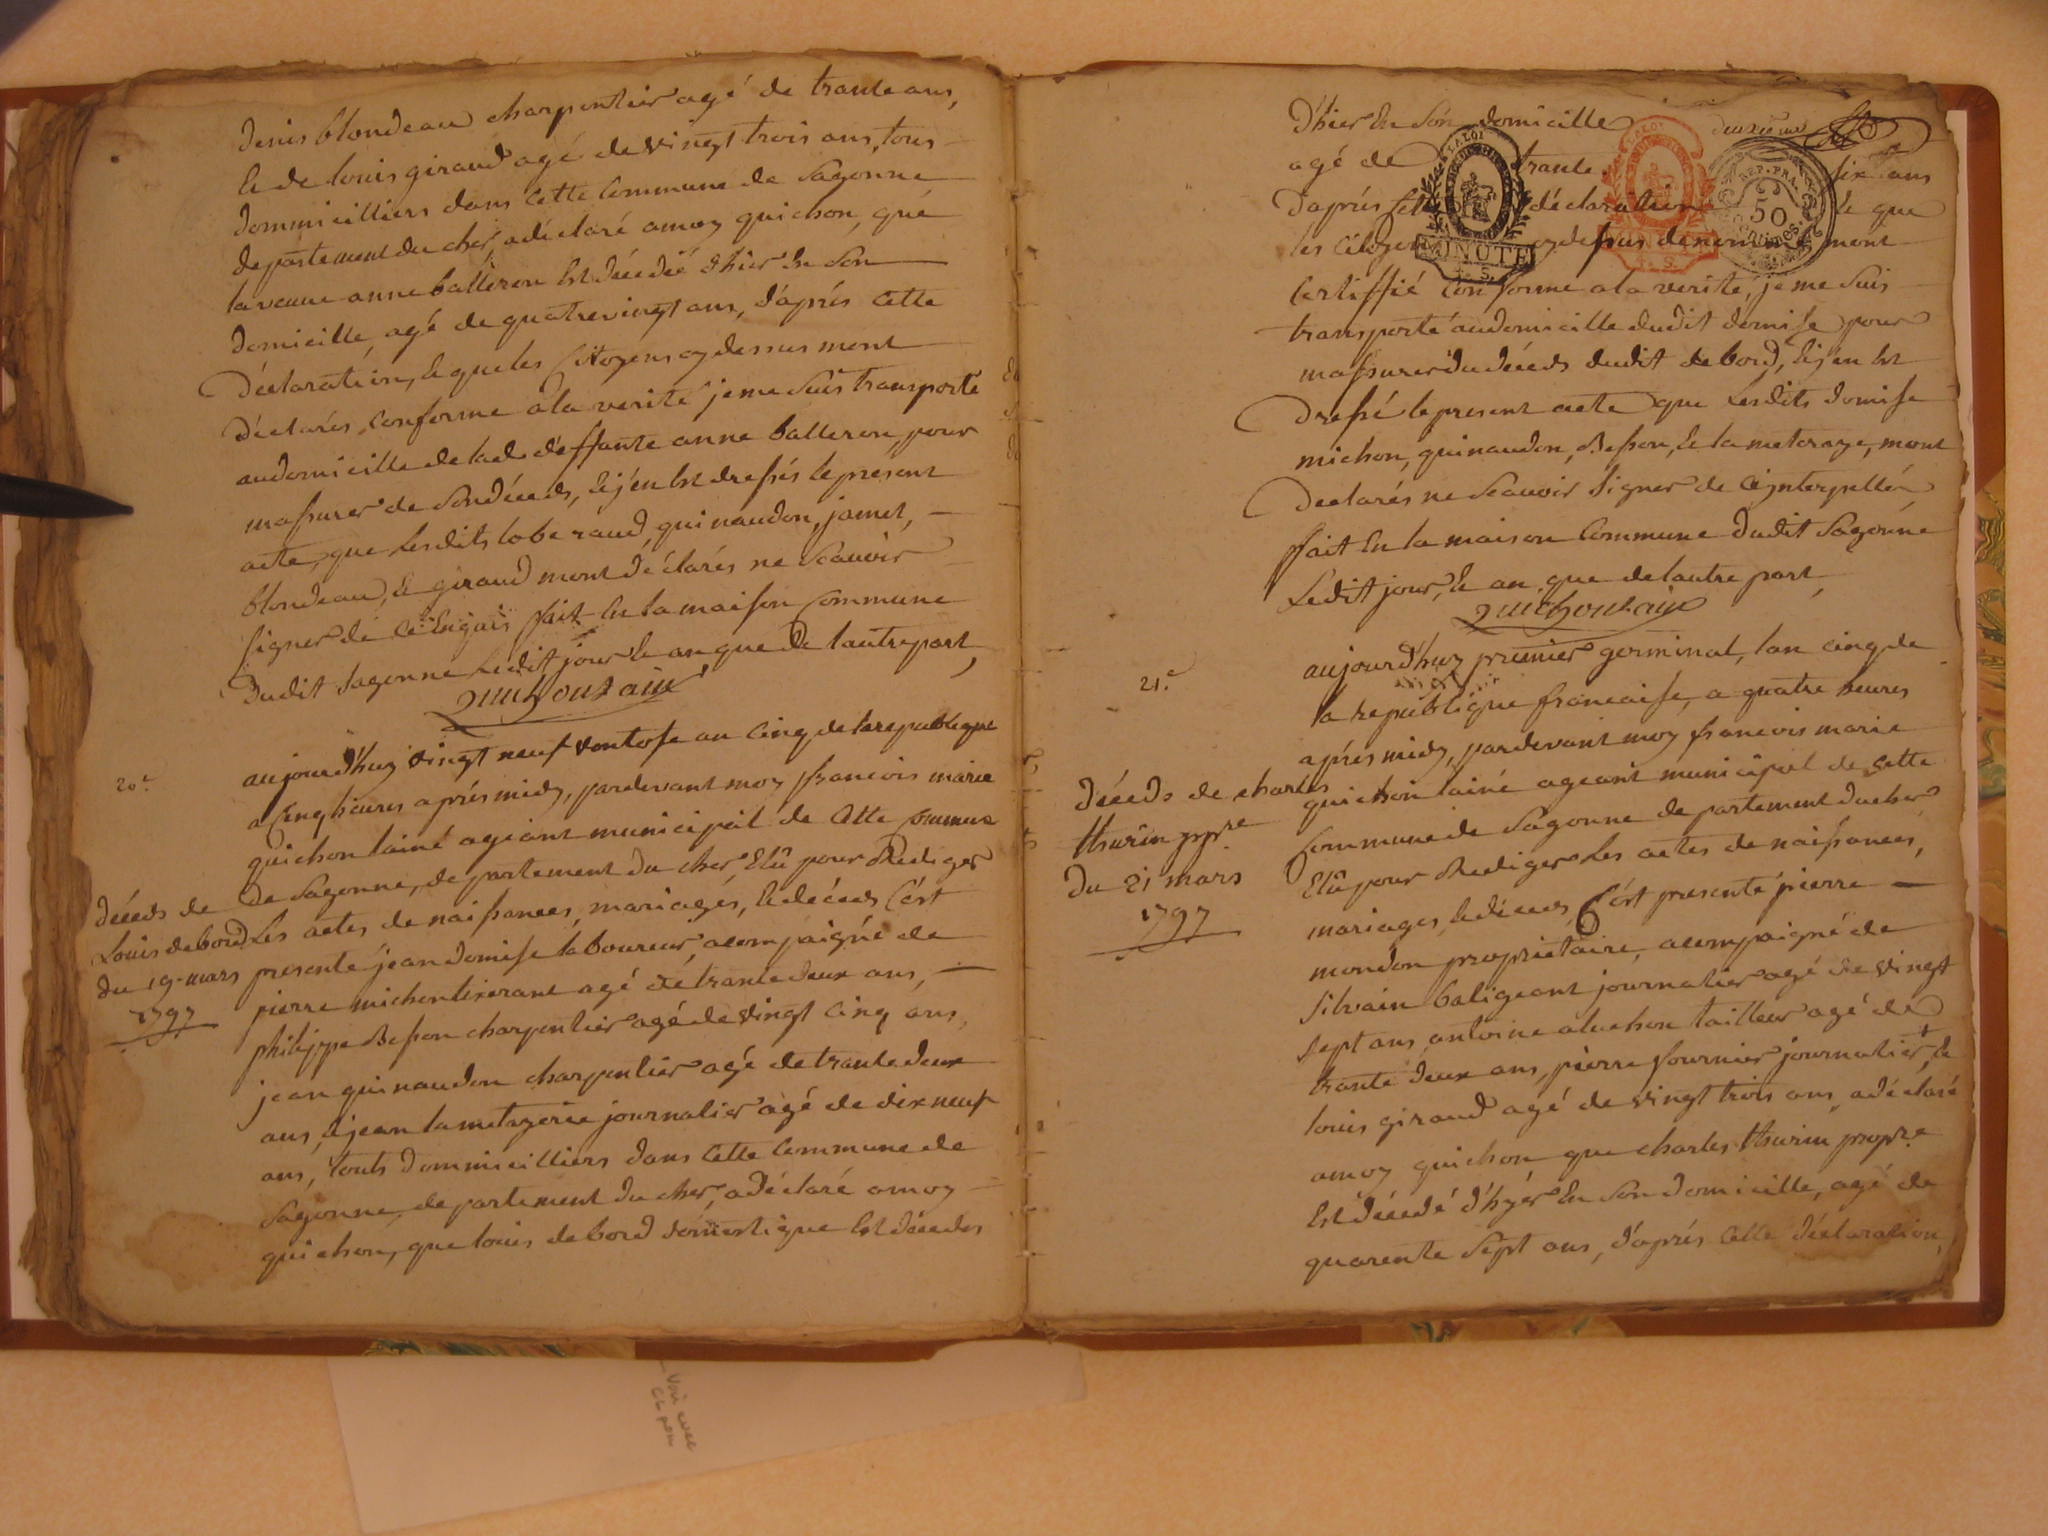 denis blondeau charpentier agé de trante ans,
& de louis giraud agé de vingt trois ans, tous
dommicilliers dans Cette Commune de Sagonne
departement du cher, adéclaré amoy quichon, que
la veuve anne balleron Est décédé d'hier En Son
domicille, agé de quatrevingt ans, d'aprés Cette
Déclaration, & que les Citoyens cy dessus mont
Déclarés Conforme ala verité je me Suis transporté
audomicille de lad. déffante anne balleron, pour
massurer de Sondéceds, & j'en Est dressés le present
acte, que Lesdits loberaud, quinaudon, jamet,
blondeau, & giraud mont déclarés ne Scavoir
signer de
fait En la maison Commune
Dudit Sagonne Ledit jour & an que de lautre part,
20.e
aujourd'huy vingt neuf vantose an Cinq de la republique
a Cinq heures aprés midy, pardevant moy francois marie
quichon lainé ageant municipal de Cette Commune
de Sagonne, departement du cher, Elû pour Rediger
Les actes de naissances, mariages, & déceds C'ést
presenté jean domise laboureur, acompaigné de
pierre michon tixerant agé de trante deux ans,
philippe Besson charpentier agé de vingt Cinq ans,
jean quinaudon charpentier agé de trante deux
ans, & jean lametayerie journalier agé de dix neuf
ans, touts dommicilliers dans Cette Commune de
Sagonne, departement du cher, adéclaré amoy
quichon, que louis debord domestique Est décedes
décéds de
Louis debord
du 19 mars
1797
D'hier En Son domicille
deuxieme
agé de trante six ans
D'aprés Cette déclaration & que
les Citoyens cy dessus denommés mont
Certiffié Conforme ala verité, je me Suis
transporté audomicille dudit domise pour
massurer du décéds dudit debord, & j'en Est
Dressé le present acte que Lesdits domise
michon, quinaudon, Besson, & la meteraye, mont
Declarés ne Scavoir Signer de Ce jnterpellés
ffait En la maison Commune Dudit Sagonne
Ledit jour, & an que de lautre part,
LA LOI
MINUTE
REP. FRA.
50
CENTIMES
21.e
aujourd'huy premier germinal, lan Cinq de
la republique francaise, a quatre heures
aprés midy, pardevant moy francois marie
quichon lainé ageant municipal de Cette
Commune de Sagonne departement du cher
Elû pour Rediger Les actes de naissances,
mariages, & déceds, C'ést presenté pierre
mondon propriétaire, acompaigné de
Silvain baligeant journalier agé de vingt
Sept ans, antoine aluchon tailleur agé de
trante deux ans, pierre fournier journalier, &
louis giraud agé de vingt trois ans, adéclaré
amoy quichon que charles thurin propr.e
Est décedé d'hyér En Son domicille, agé de
quarente Sept ans, d'aprés Cette déclaration,
décéds de charles
thurin ppr.e
du 21 mars
1797